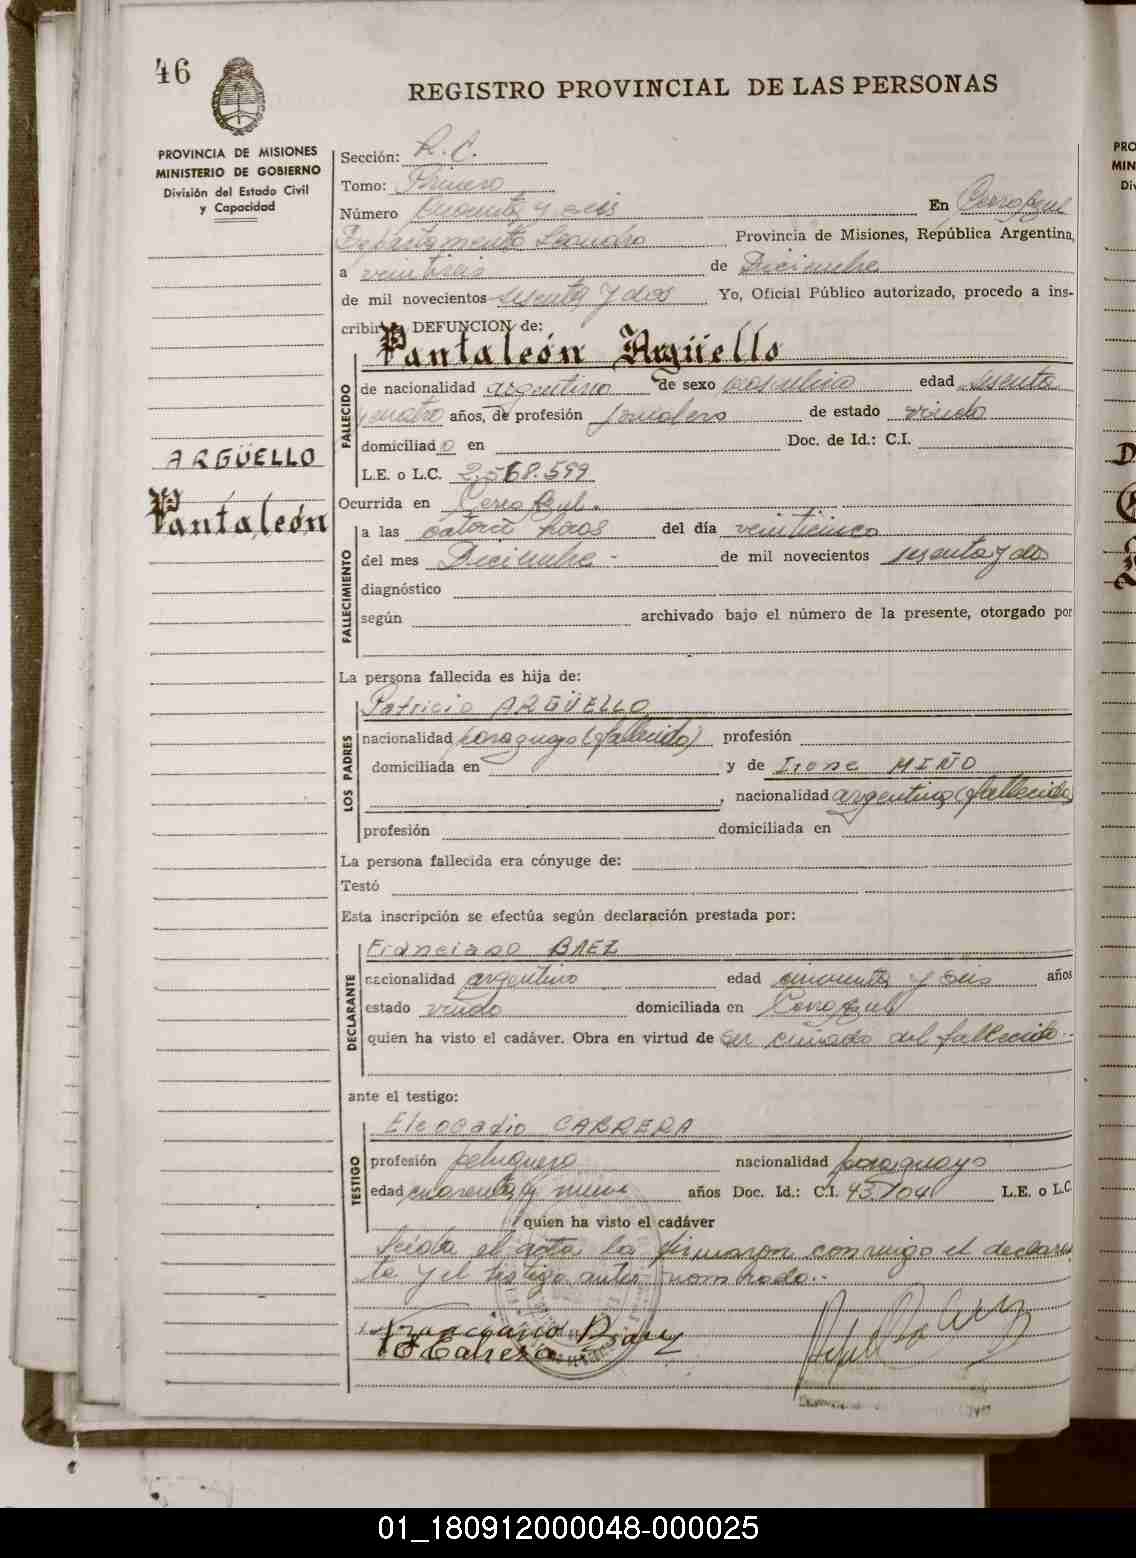 46
REGISTRO PROVINCIAL DE LAS PERSONAS
PROVINCIA DE MISIONES
MINISTERIO DE GOBIERNO
División del Estado Civil
y Capacidad
Sección: R. C.
Tomo: Primero
Número cuarenta y seis En Cerro Azul
Departamento Leandro Provincia de Misiones, República Argentina,
a veintiseis de Diciembre
de mil novecientos sesenta y dos Yo, Oficial Público autorizado, procedo a ins-
cribir DEFUNCION de:
Pantaleón Argüello
FALLECIDO
de nacionalidad argentino de sexo masculino edad sesenta
y cuatro años, de profesión jornalero de estado viudo
domiciliado en Doc. de Id.: C.I.
L.E. o L.C. 2.568.599
ARGÜELLO
Pantaleón
Ocurrida en Cerro Azul.
FALLECIMIENTO
a las catorce horas del día veinticinco
del mes Diciembre - de mil novecientos sesenta y dos
diagnóstico
según archivado bajo el número de la presente, otorgado por
La persona fallecida es hija de:
LOS PADRES
Patricio ARGÜELLO
nacionalidad paraguayo (fallecido) profesión
domiciliada en y de Irene MIÑO
, nacionalidad argentina (fallecida)
profesión domiciliada en
La persona fallecida era cónyuge de:
Testó
Esta inscripción se efectúa según declaración prestada por:
DECLARANTE
Franciano BAEZ
nacionalidad argentino edad cincuenta y seis años
estado viudo domiciliada en Cerro Azul
quien ha visto el cadáver. Obra en virtud de ser cuñado del fallecido.-
ante el testigo:
TESTIGO
Eleocadio CABRERA
profesión peluquero nacionalidad paraguayo
edad cuarenta y nueve años Doc. Id.: C.I. 43.704 L.E. o L.C.
quien ha visto el cadáver
Leída el acta la firmaron conmigo el declaran
te y el testigo antes nombrado.-
Franciano Baez
E Cabrera
01_180912000048-000025